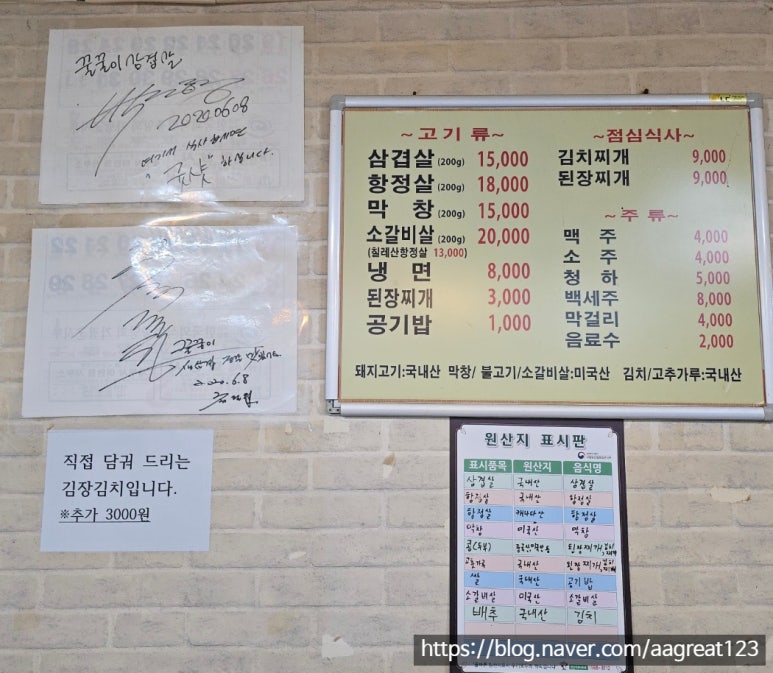 꿀꿀이 삼겹살
2020 06 08
여기서 식사하시면
"굿샷"
하십니다.
꿀꿀이
2020.6.8
직접 담궈 드리는
김장김치입니다.
※추가 3000원
~고기류~
삼겹살 (200g) 15,000
항정살 (200g) 18,000
막 창 (200g) 15,000
소갈비살 (200g) 20,000
(칠레산항정살 13,000)
냉 면 8,000
된장찌개 3,000
공기밥 1,000
~점심식사~
김치찌개 9,000
된장찌개 9,000
~주류~
맥 주 4,000
소 주 4,000
청 하 5,000
백세주 8,000
막걸리 4,000
음료수 2,000
돼지고기:국내산 막창/ 불고기/소갈비살:미국산 김치/고추가루:국내산
원산지 표시판
표시품목 원산지 음식명
삼겹살 국내산 삼겹살
항정살 국내산 항정살
항정살 캐나다산 항정살
막창 미국산 막창
콩(두부) 된장찌개
고춧가루 국내산 된장찌개
쌀 국내산 공기밥
소갈비살 미국산 소갈비살
배추 국내산 김치
https://blog.naver.com/aagreat123